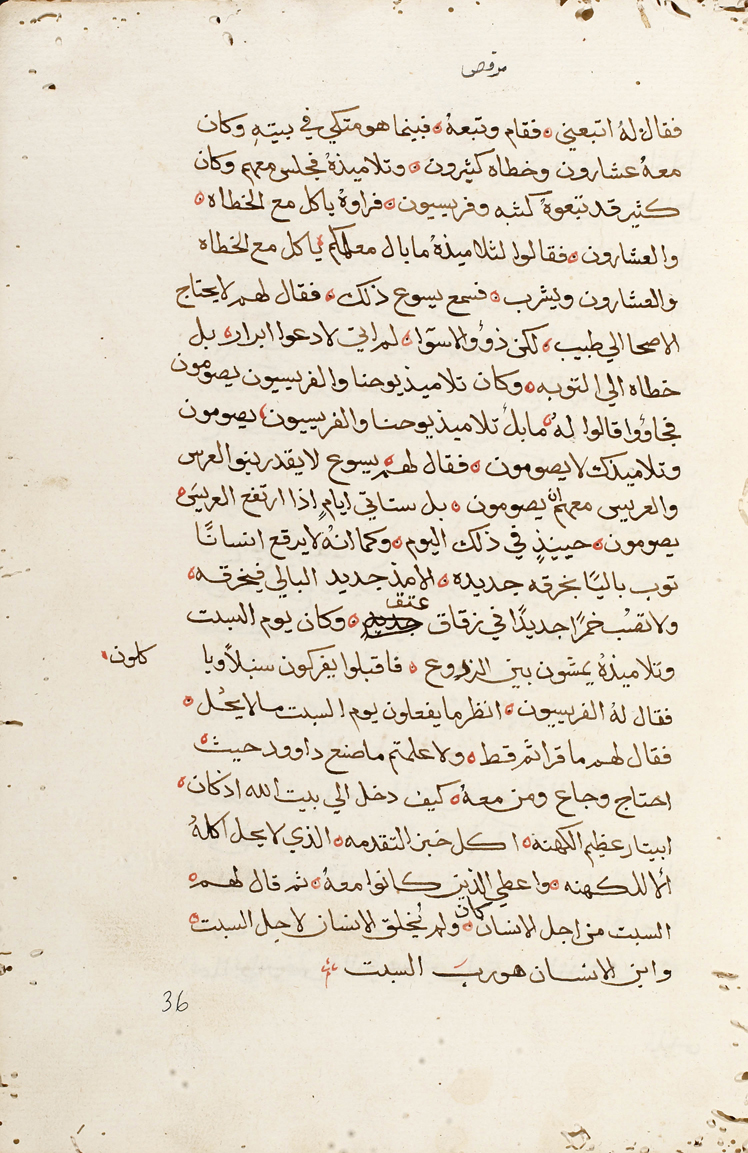 مرقص
فقال له اتبعني ه فقام وتبعه ه فبينما هو متكي في بيته وكان
معه عشارون وخطاه كثيرون ه وتلاميذه فجلس معهم وكان
كثير قد تبعوه كتبه وفريسيون ه فراوه ياكل مع الخطاه ه
والعشارون ه فقالوا لتلاميذه ما بال معلمكم ياكل مع الخطاه
والعشارون ويشرب ه فسمع يسوع ذلك ه فقال لهم لا يحتاج
الاصحا الي طبيب ه لكن ذوؤ والاسوا ه لم اتي لادعوا ابرار ه بل
خطاه الي التوبه ه وكان تلاميذ يوحنا والفريسيون يصومون
فجاؤوا قالوا له ه ما بال تلاميذ يوحنا والفريسيون يصومون
وتلاميذك لا يصومون ه فقال لهم ه يسوع لا يقدر بنو العرس
والعريس معهم ان يصومون ه بل ستاتي ايامٍ اذا ارتفع العريس ه
يصومون ه حينيذٍ في ذلك اليوم ه وكما انه لا يرقع انسانًا
توب باليًا بخرقه جديده ه الامذ جديد البالي فيخرقه ه
ولا تصب خمرًا جديدًا في زقاق عتق ه وكان يوم السبت
وتلاميذه يمشون بين الزروع ه فاقبلوا يفركون سنبلاً ويا
كلون ه
فقال له الفريسيون ه انظر ما يفعلون يوم السبت ما لا يحل ه
فقال لهم ما قراتم قط ه ولا علمتم ما صنع داوود حيث ه
احتاج وجاع ومن معه ه كيف دخل الي بيت الله اذ كان ه
ابيتار عظيم الكهنه ه اكل خبز التقدمه ه الذي لا يحل اكله
الا للكهنه ه واعطي الذين كانوا معه ه ثم قال لهم ه
السبت من اجل الانسان كان ه ولم يُخلق الانسان لاجل السبت ه
وابن الانسان هو رب السبت
36